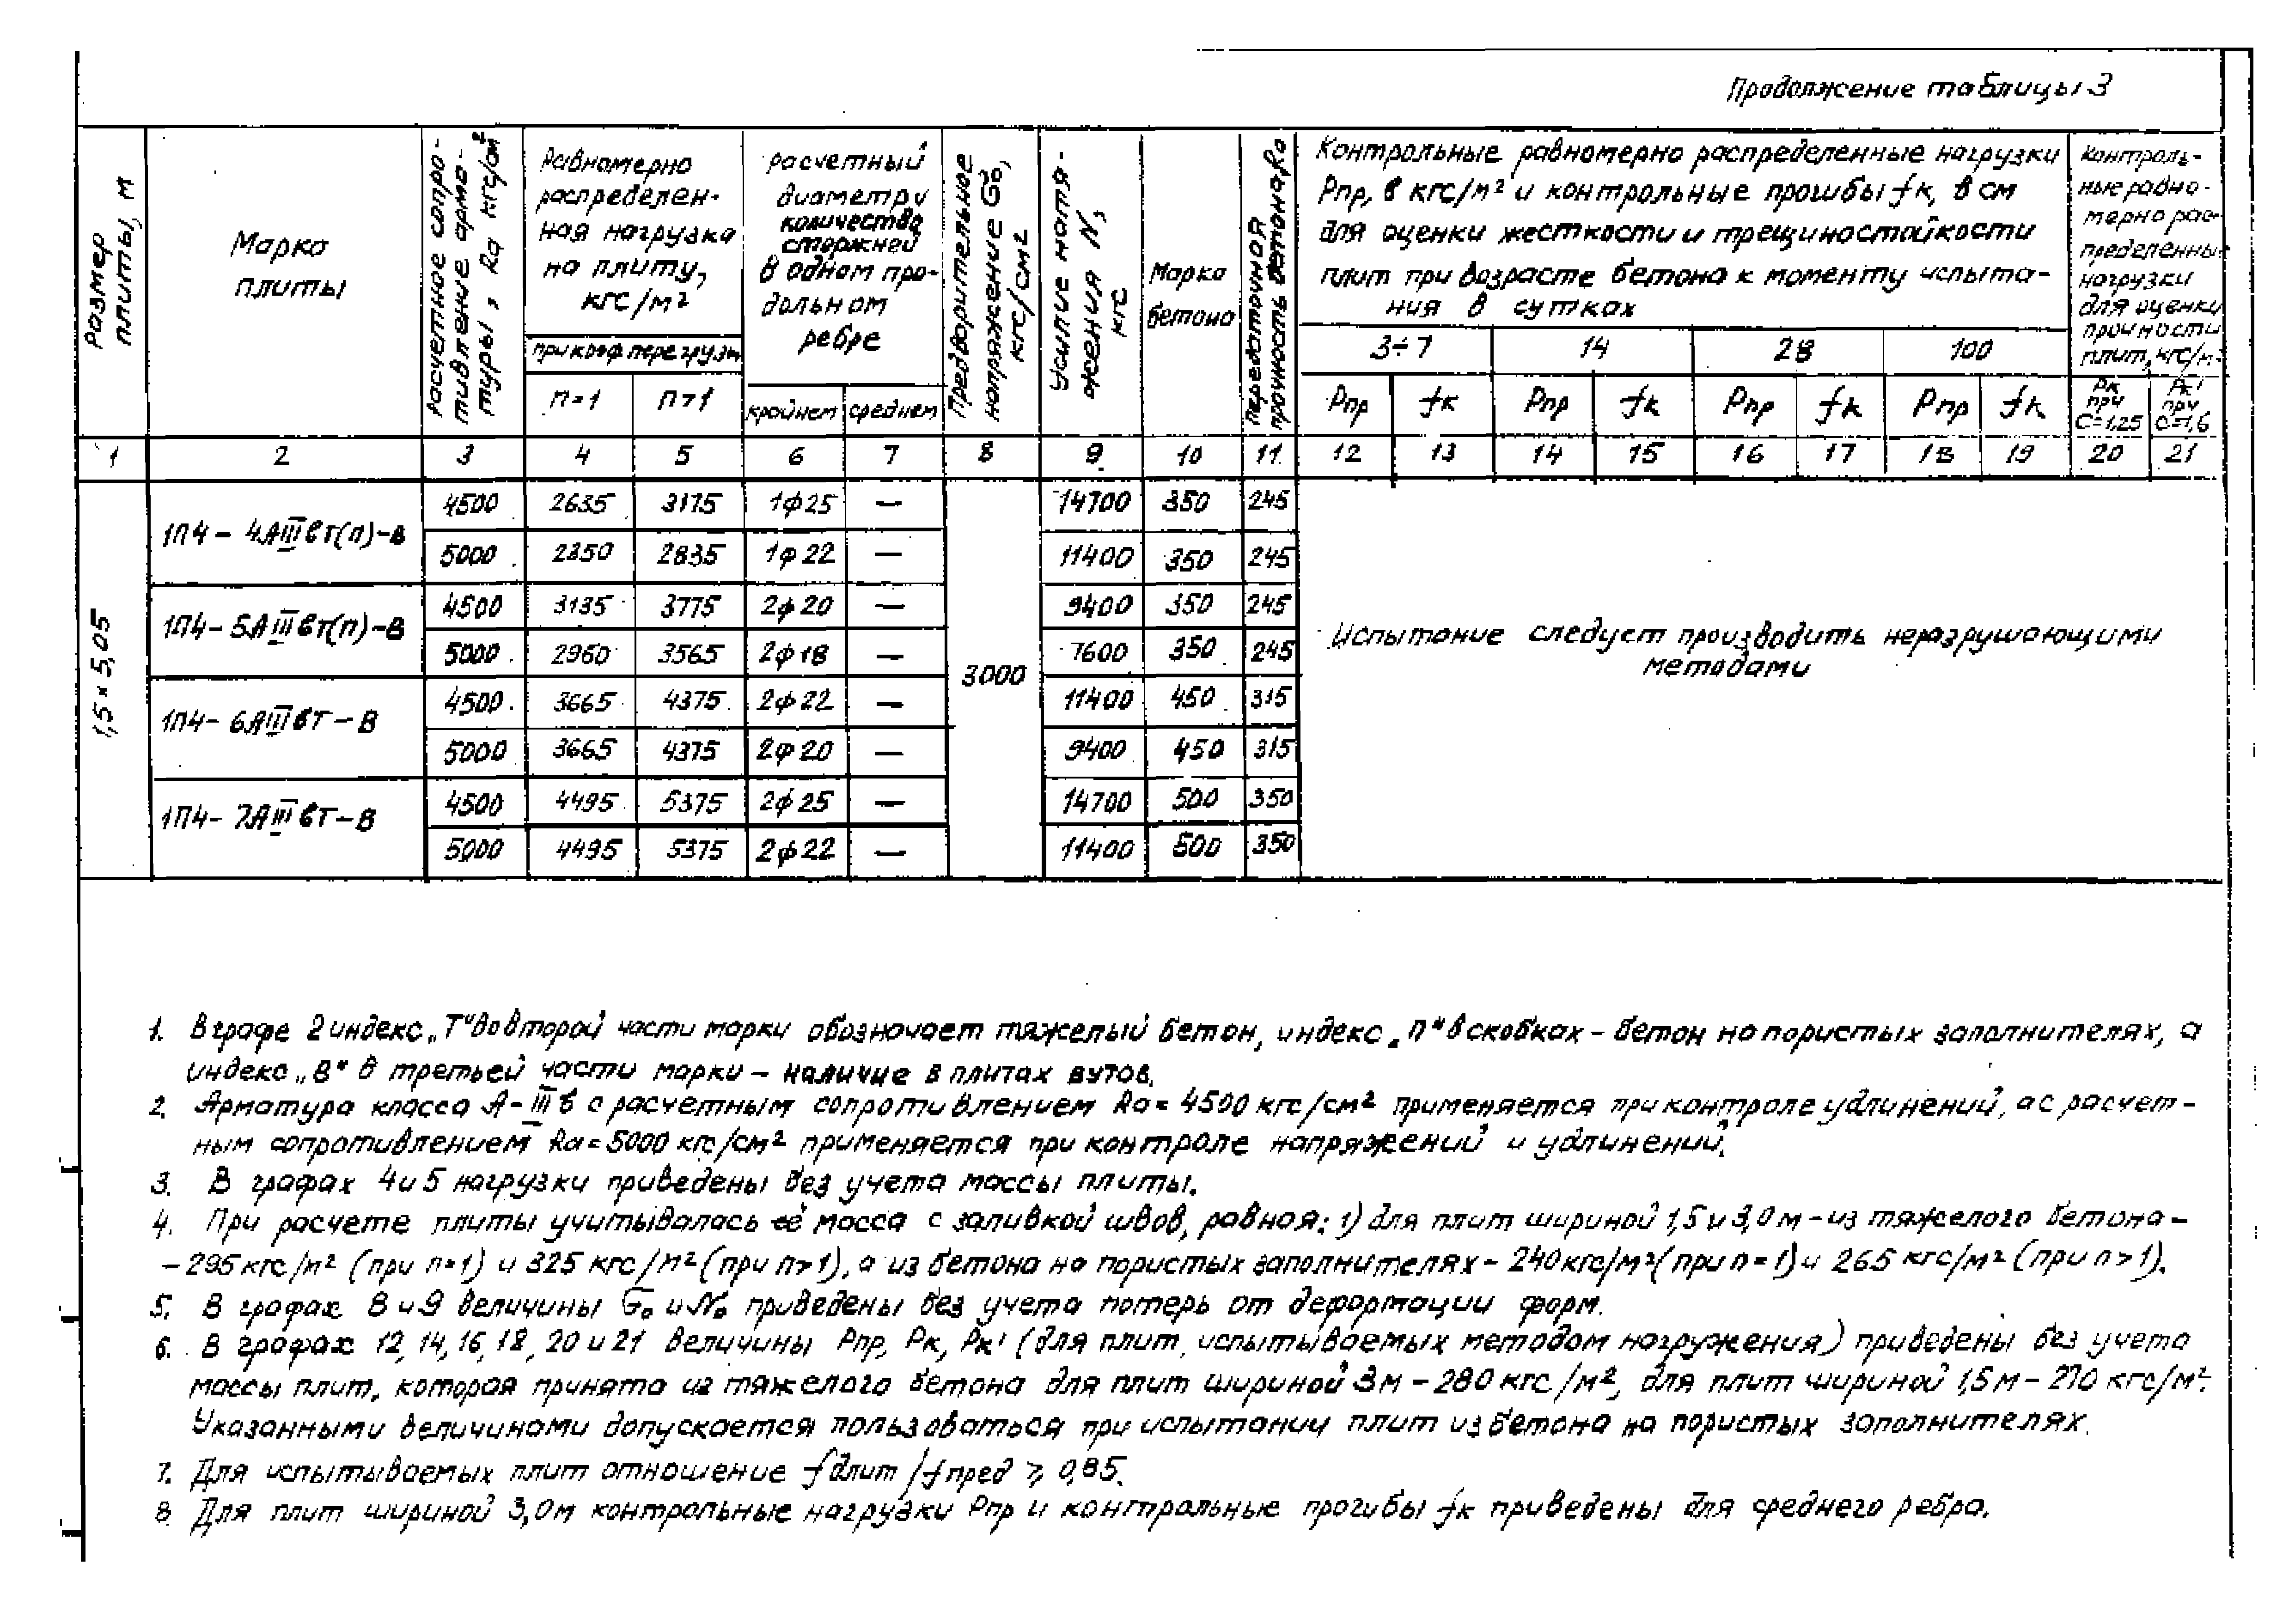 Продолжение таблицы 3
Размер плиты, м
Марка плиты
Расчетное сопротивление арматуры, Ra кгс/см²
Равномерно
распределен-
ная нагрузка
на плиту,
кгс/м²
при коэф. перегрузк.
n=1 n>1
расчетный
диаметр и
количество
стержней
в одном про-
дольном
ребре
крайнем среднем
Предварительное напряжение σ₀, кгс/см²
Усилие натя-
жения N,
кгс
Марка
бетона
Передаточная прочность бетона Ro
Контрольные равномерно распределенные нагрузки
Pпр, в кгс/м² и контрольные прошбы fк, в см
для оценки жесткости и трещиностойкости
плит при возрасте бетона к моменту испыта-
ния в сутках
3÷7 14 28 100
Pпр fк Pпр fк Pпр fк Pпр fк
Контроль-
ные равно-
мерно рас-
пределенны-
нагрузки
для оценки
прочности
плит, кгс/м²
Pк при C=1,25 Pк' при C=1,6
1 2 3 4 5 6 7 8 9 10 11 12 13 14 15 16 17 18 19 20 21
1,5 × 5,05
1П4-4АIIIвТ(п)-В
4500 2635 3175 1φ25 — 14700 350 245
5000 2350 2835 1φ22 — 11400 350 245
1П4-5АIIIвТ(п)-В
4500 3135 3775 2φ20 — 9400 350 245
5000 2960 3565 2φ18 — 7600 350 245
3000
Испытание следует производить неразрушающими
методами
1П4-6АIIIвТ-В
4500 3665 4375 2φ22 — 11400 450 315
5000 3665 4375 2φ20 — 9400 450 315
1П4-7АIIIвТ-В
4500 4495 5375 2φ25 — 14700 500 350
5000 4495 5375 2φ22 — 11400 500 350
1. В графе 2 индекс „Т" во второй части марки обозначает тяжелый бетон, индекс „п" в скобках - бетон на пористых заполнителях, а
индекс „В" в третьей части марки - наличие в плитах вутов.
2. Арматура класса А-IIIв с расчетным сопротивлением Ra = 4500 кгс/см² применяется при контроле удлинений, а с расчет-
ным сопротивлением Ra = 5000 кгс/см² применяется при контроле напряжений и удлинений.
3. В графах 4 и 5 нагрузки приведены без учета массы плиты.
4. При расчете плиты учитывалась её масса с заливкой швов, равная: 1) для плит шириной 1,5 и 3,0 м - из тяжелого бетона -
- 295 кгс/м² (при n=1) и 325 кгс/м² (при n>1), а из бетона на пористых заполнителях - 240 кгс/м² (при n=1) и 265 кгс/м² (при n>1).
5. В графах 8 и 9 величины σ₀ и N₀ приведены без учета потерь от деформации форм.
6. В графах 12, 14, 16, 18, 20 и 21 величины Pпр, Pк, Pк' (для плит, испытываемых методом нагружения) приведены без учета
массы плит, которая принята из тяжелого бетона для плит шириной 3м - 280 кгс/м², для плит шириной 1,5м - 270 кгс/м².
Указанными величинами допускается пользоваться при испытании плит из бетона на пористых заполнителях.
7. Для испытываемых плит отношение fдлит / fпред ≥ 0,85.
8. Для плит шириной 3,0м контрольные нагрузки Pпр и контрольные прогибы fк приведены для среднего ребра.